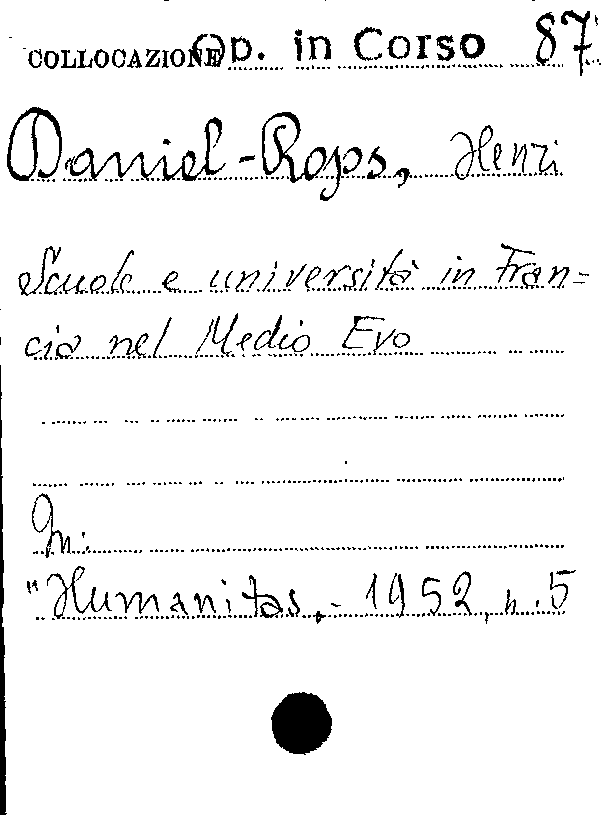 COLLOCAZIONE Op. in Corso 87
Daniel-Rops, Henri
Scuole e università in Fran=
cia nel Medio Evo
In:
"Humanitas,- 1952, n.5